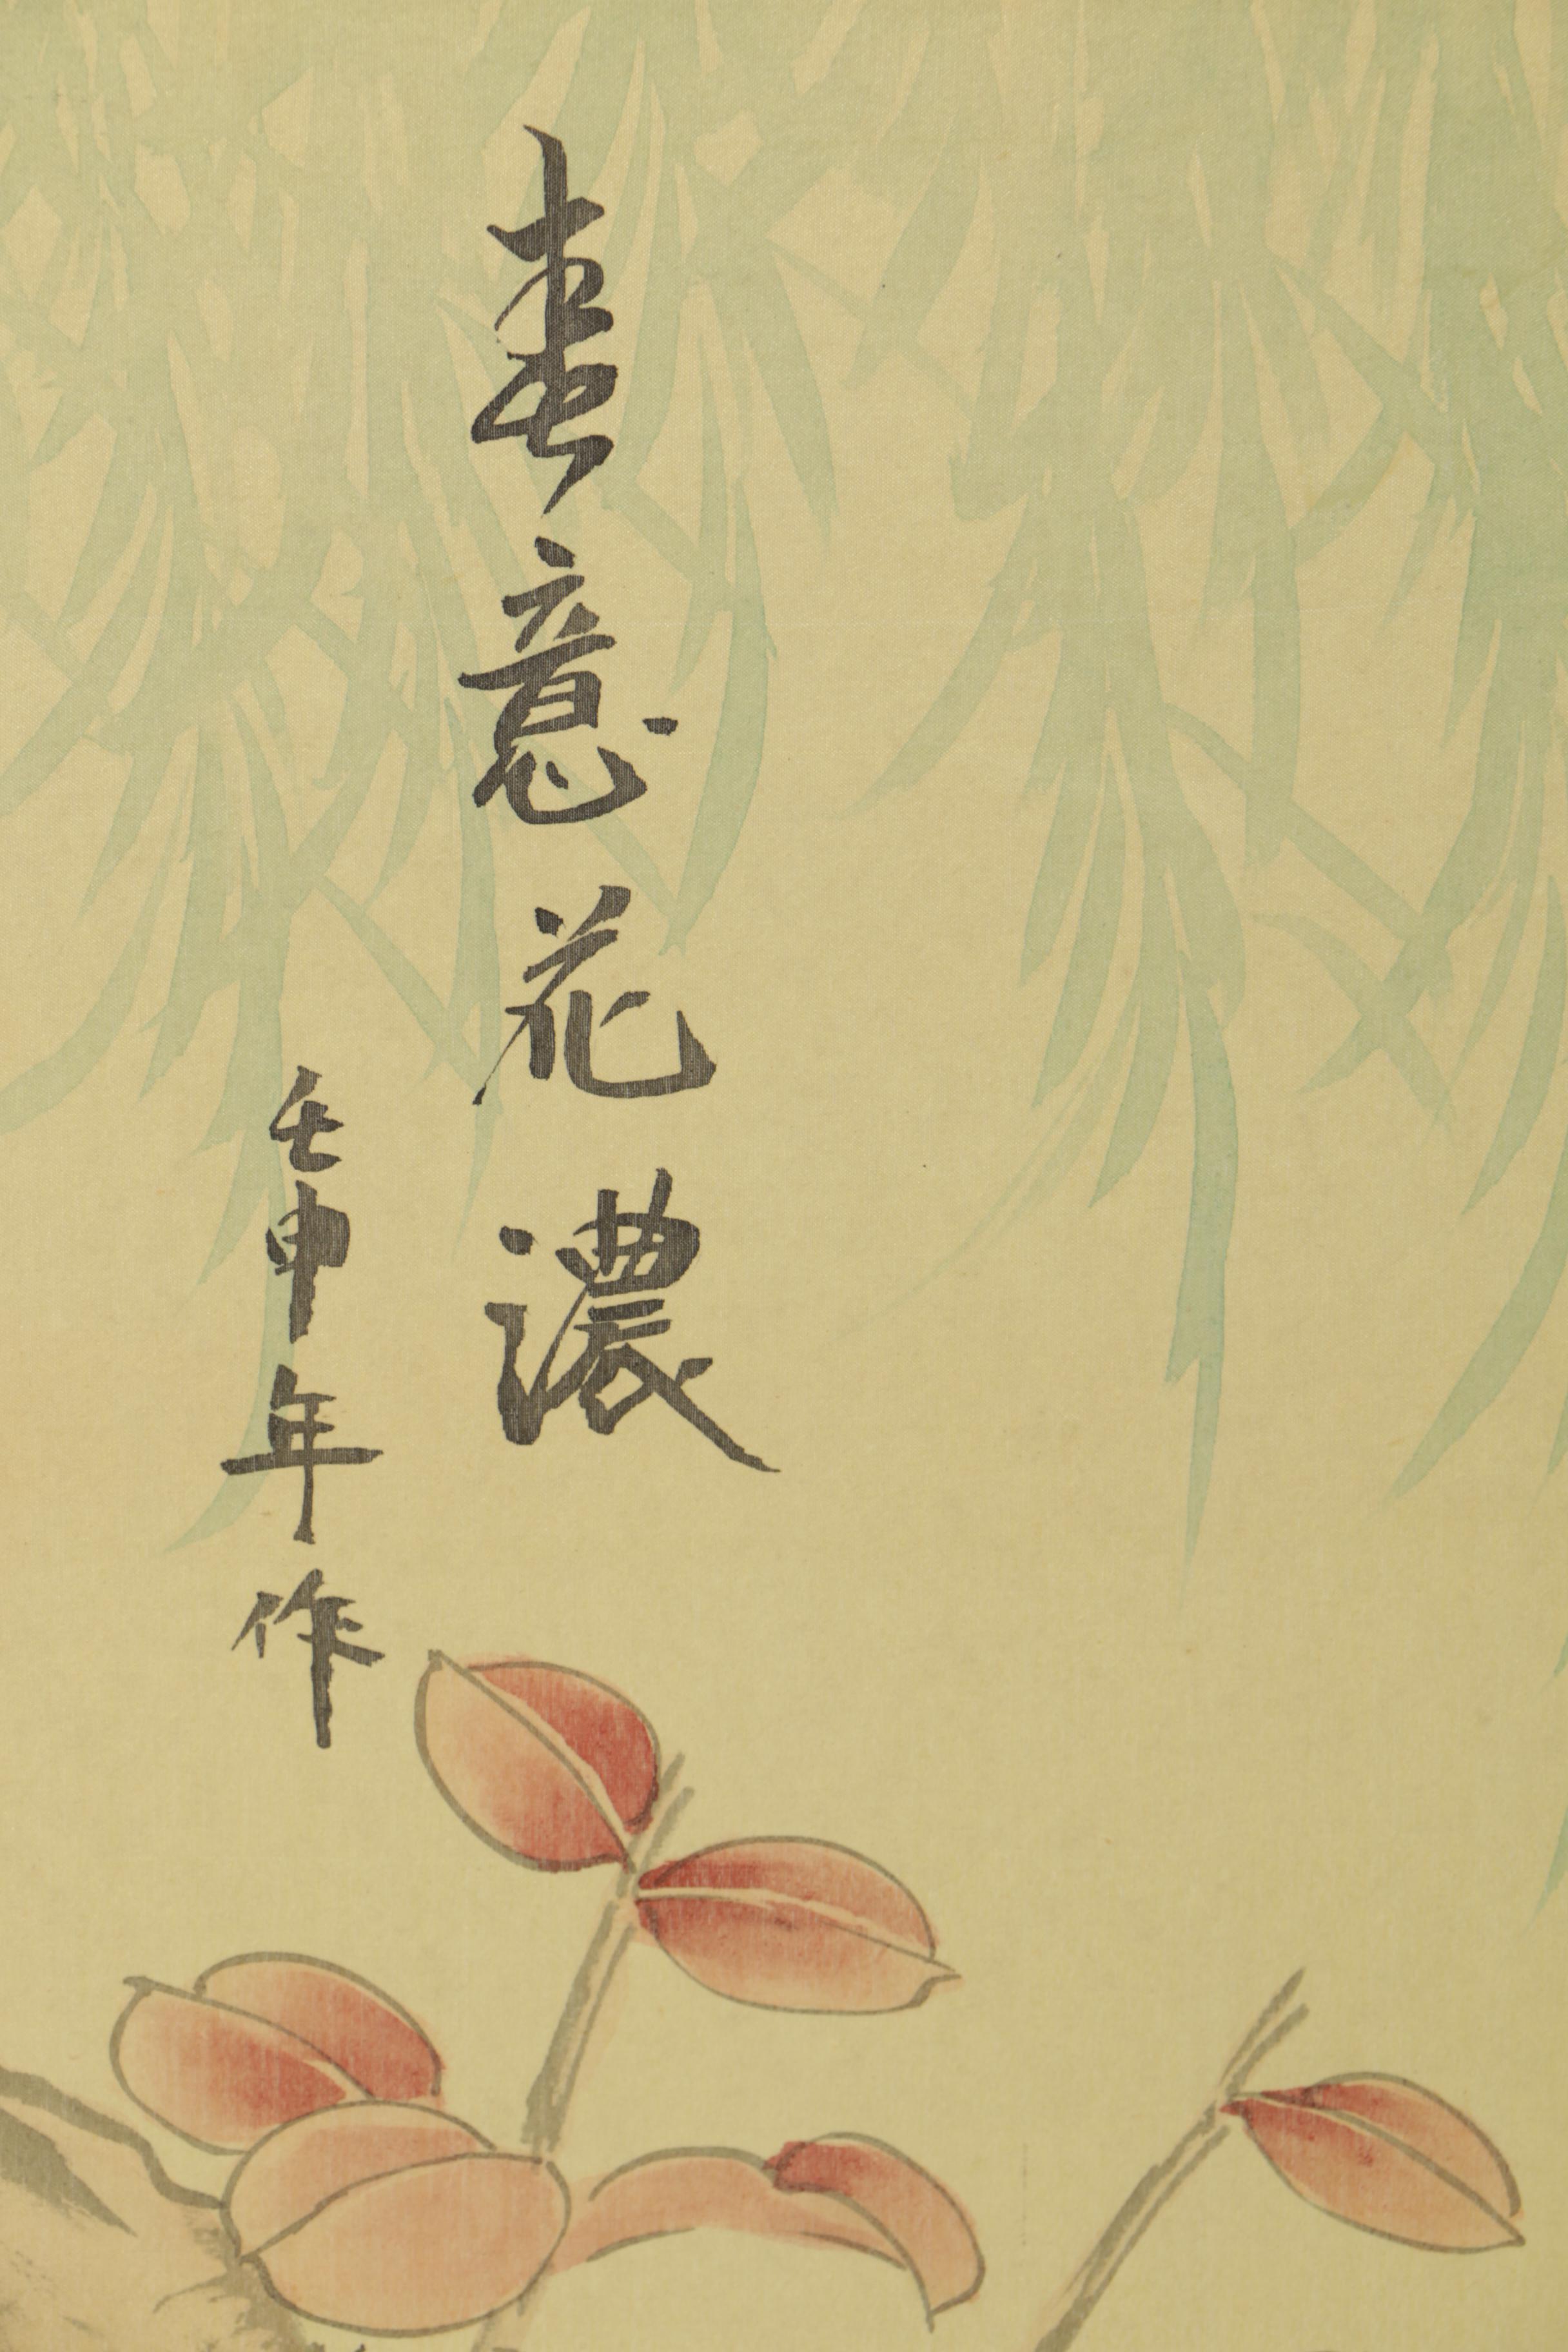 春意花濃
壬申年作